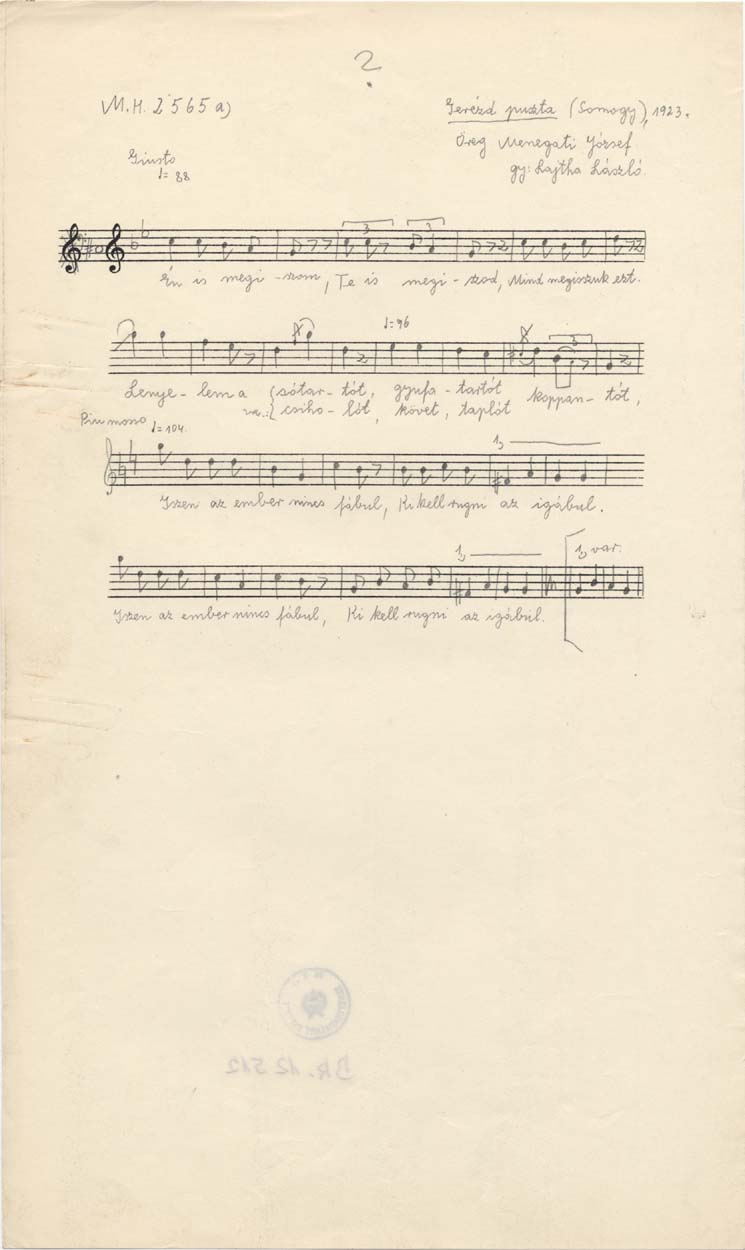 2.
M.H. 2565 a)
Gerézd puszta (Somogy), 1923.
Öreg Menegati József
gy: Lajtha László.
Giusto
♩= 88
3 3
Én is megi-szom, Te is megi-szod, Mind megiszuk ezt.
♩= 96
3
Lenye-lem a {sótar-tót, gyufa-tartót koppan-tót,
va.: {csiho-lót, követ, taplót
Piu mono ♩= 104.
1,
Iszen az ember nincs fábul, Ki kell rugni az igábul.
1, 1, var.
Iszen az ember nincs fábul, Ki kell rugni az igábul.
BR. 12512